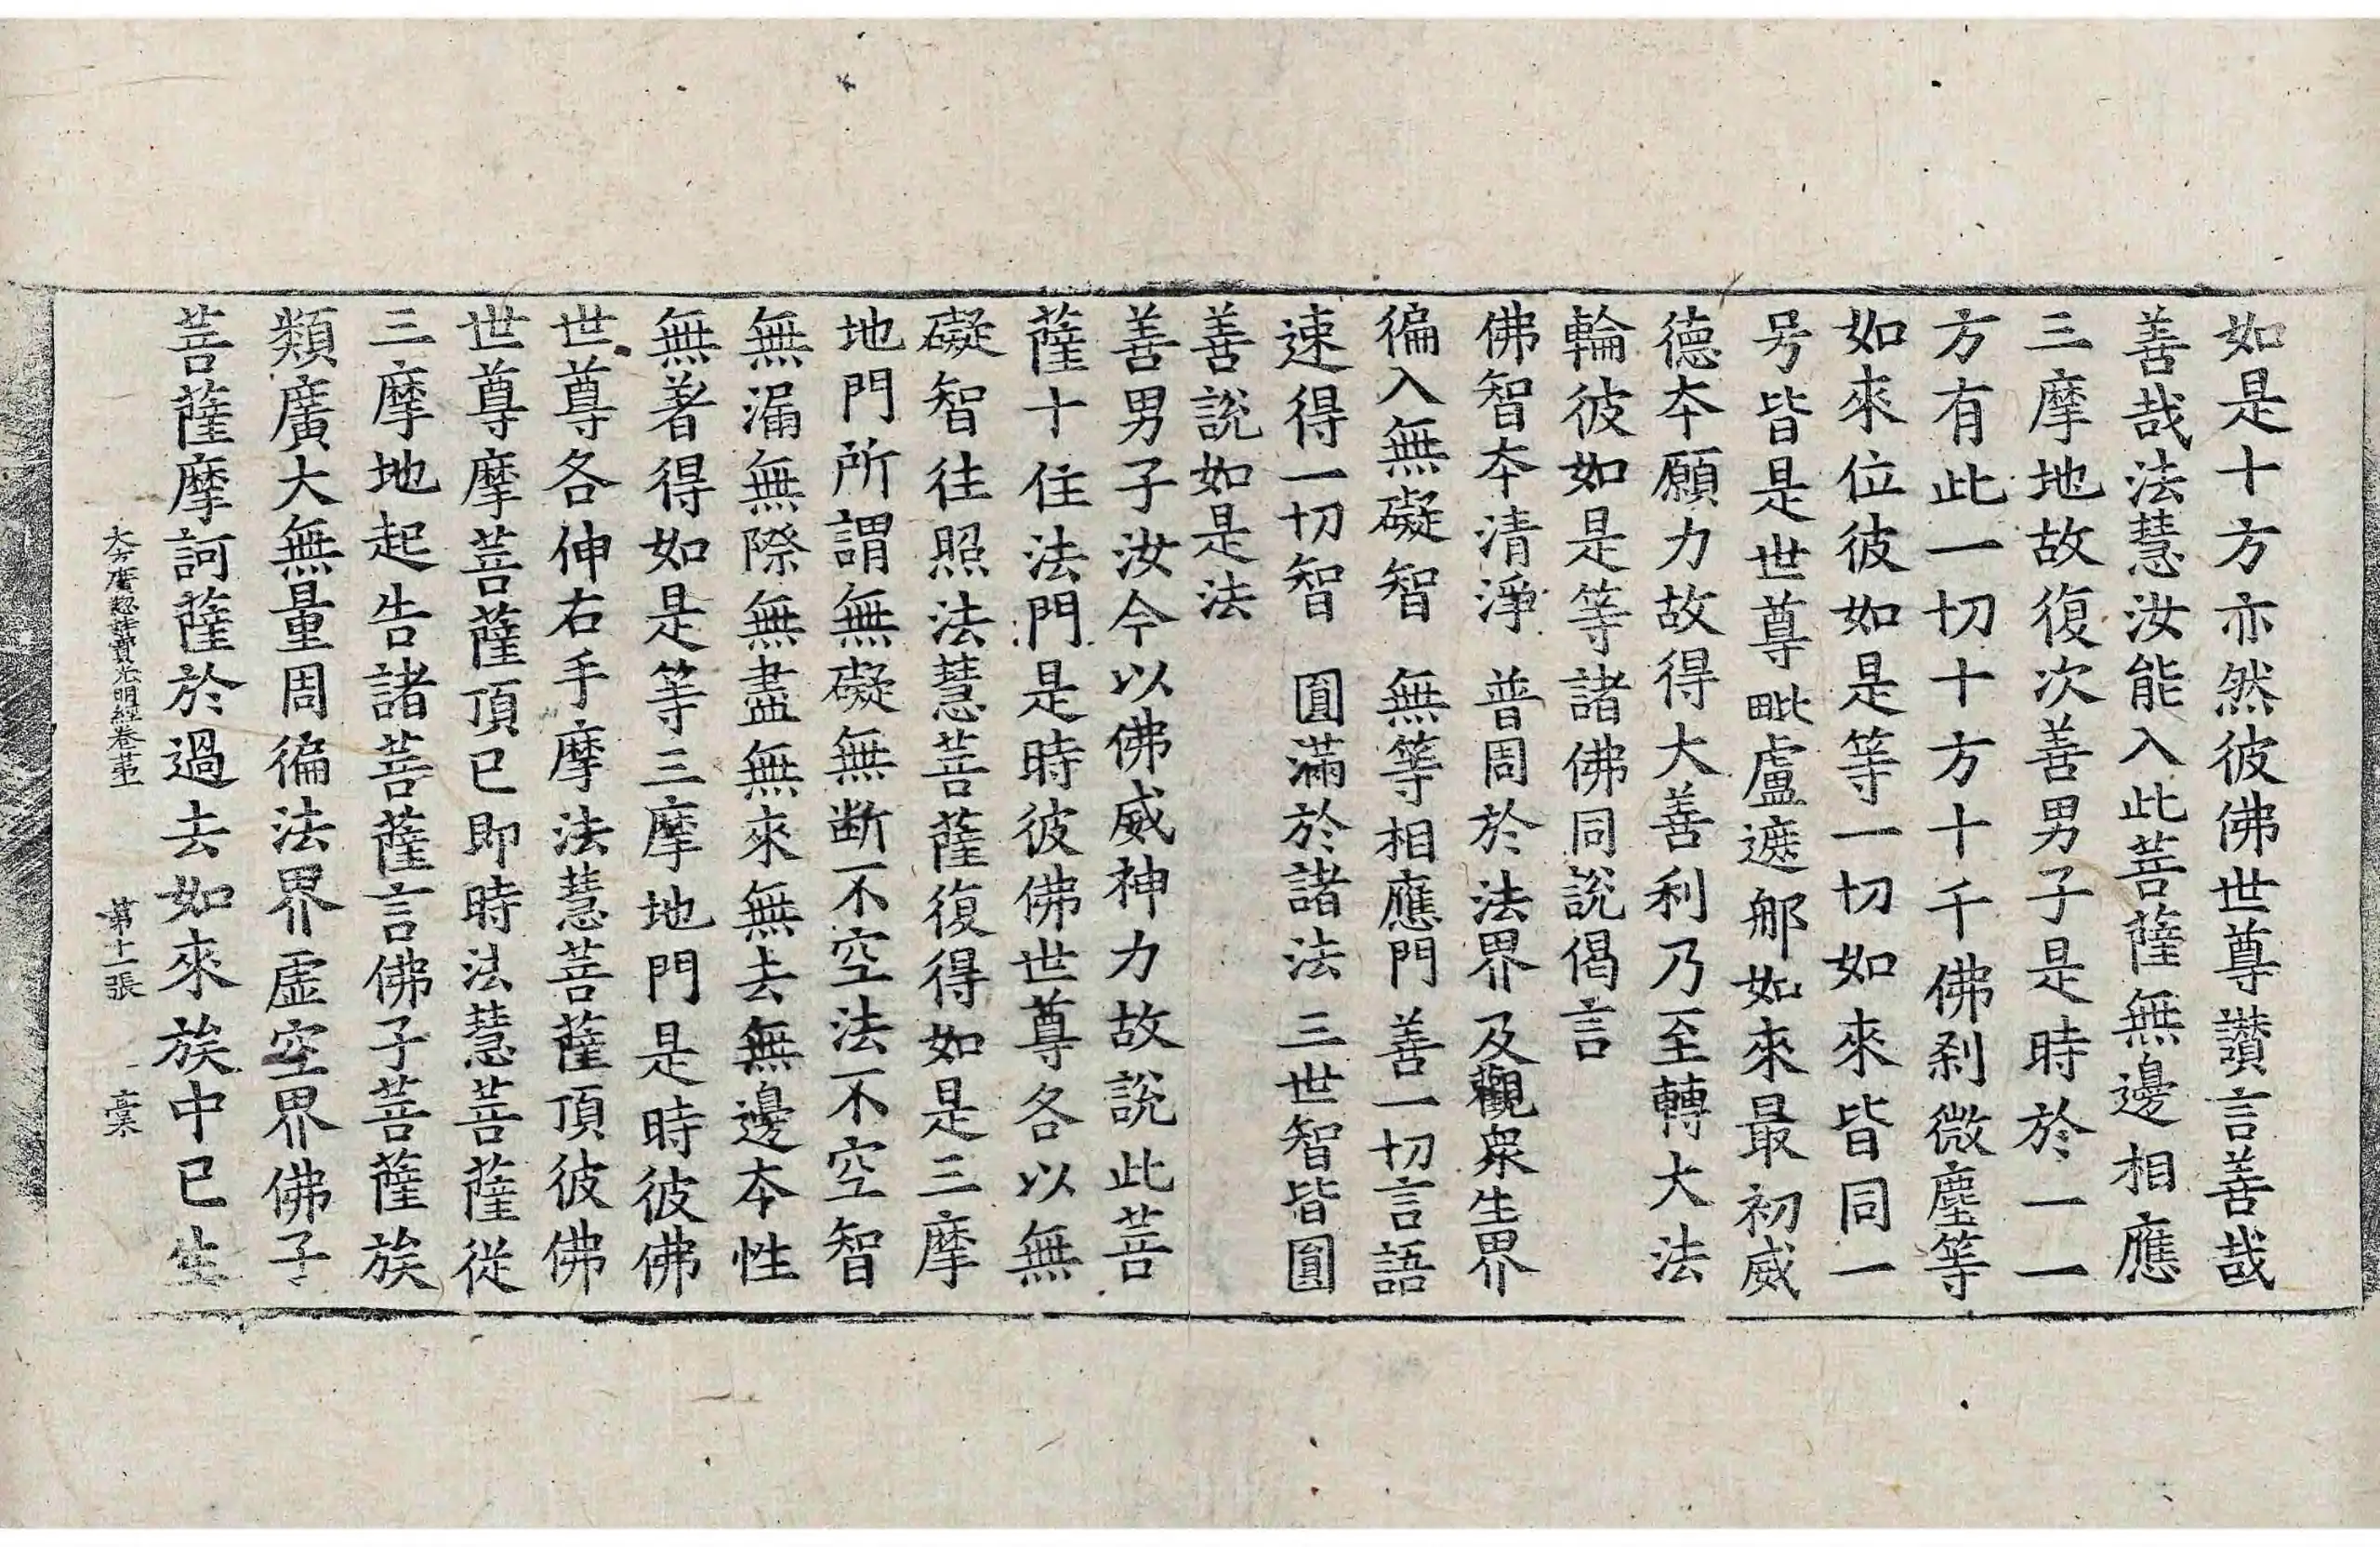 如是十方亦然彼佛世尊讃言善哉
善哉法慧汝能入此菩薩無邊相應
三摩地故復次善男子是時於一一
方有此一切十方十千佛刹微塵等
如來位彼如是等一切如來皆同一
号皆是世尊毗盧遮那如來最初威
德夲願力故得大善利乃至轉大法
輪彼如是等諸佛同說偈言
佛智夲清淨　普周於法界　及觀衆生界
徧入無礙智　無等相應門　善一切言語
速得一切智　圓滿於諸法　三世智皆圓
善說如是法
善男子汝今以佛威神力故說此菩
薩十住法門是時彼佛世尊各以無
礙智往照法慧菩薩復得如是三摩
地門所謂無礙無断不空法不空智
無漏無際無盡無來無去無邊夲性
無著得如是等三摩地門是時彼佛
世尊各伸右手摩法慧菩薩頂彼佛
世尊摩菩薩頂已即時法慧菩薩從
三摩地起告諸菩薩言佛子菩薩族
類廣大無量周徧法界虛空界佛子
菩薩摩訶薩於過去如來族中已生
大方廣揔持寶光明經卷苐　苐十一張